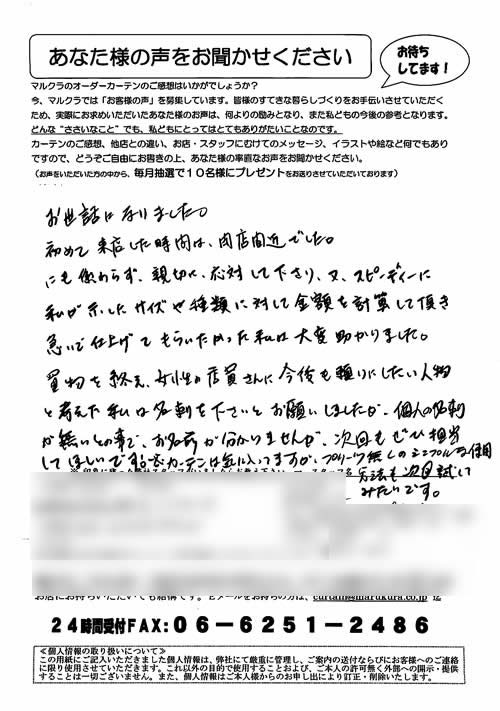 あなた様の声をお聞かせください
お待ち
してます!
マルクラのオーダーカーテンのご感想はいかがでしょうか?
今、マルクラでは「お客様の声」を募集しています。皆様のすてきな暮らしづくりをお手伝いさせていただく
ため、実際にお求めいただいたあなた様のお声は、何よりの励みとなり、また私どもの今後の参考となります。
どんな“ささいなこと”でも、私どもにとってはとてもありがたいことなのです。
カーテンのご感想、他店との違い、お店・スタッフにむけてのメッセージ、イラストや絵など何でもあり
ですので、どうぞご自由にお書きの上、あなた様の率直なお声をお聞かせください。
(お声をいただいた方の中から、毎月抽選で10名様にプレゼントをお送りさせていただいております)
お世話になりました。
初めて来店した時間は、閉店間近でした。
にも係わらず、親切に応対して下さり、又、スピーディーに
私が示したサイズや種類に対して金額を計算して頂き
急いで仕上げてもらいたかった私は大変助かりました。
買物を終え、女性の店員さんに今後も頼りにしたい人物
と考えた私は名刺を下さいとお願いしましたが、個人の名刺
が無いとの事で、お名前が分かりませんが、次回もぜひ担当
してほしいです。カーテンは気に入ってますが、プリーツ無しのシンプルな使用
方法も次回試して
みたいです。
お店にお持ちいただいても結構です。Eメールをお持ちの方は、curtain@marukura.co.jp
24時間受付FAX:06-6251-2486
≪個人情報の取り扱いについて≫
この用紙にご記入いただきました個人情報は、弊社にて厳重に管理し、ご案内の送付ならびにお客様へのご連絡
に限り使用させていただきます。これ以外の目的で使用することおよび、ご本人の許可無く外部への開示・提供
することは一切ございません。また、個人情報はご本人様からのお申し出により訂正・削除いたします。